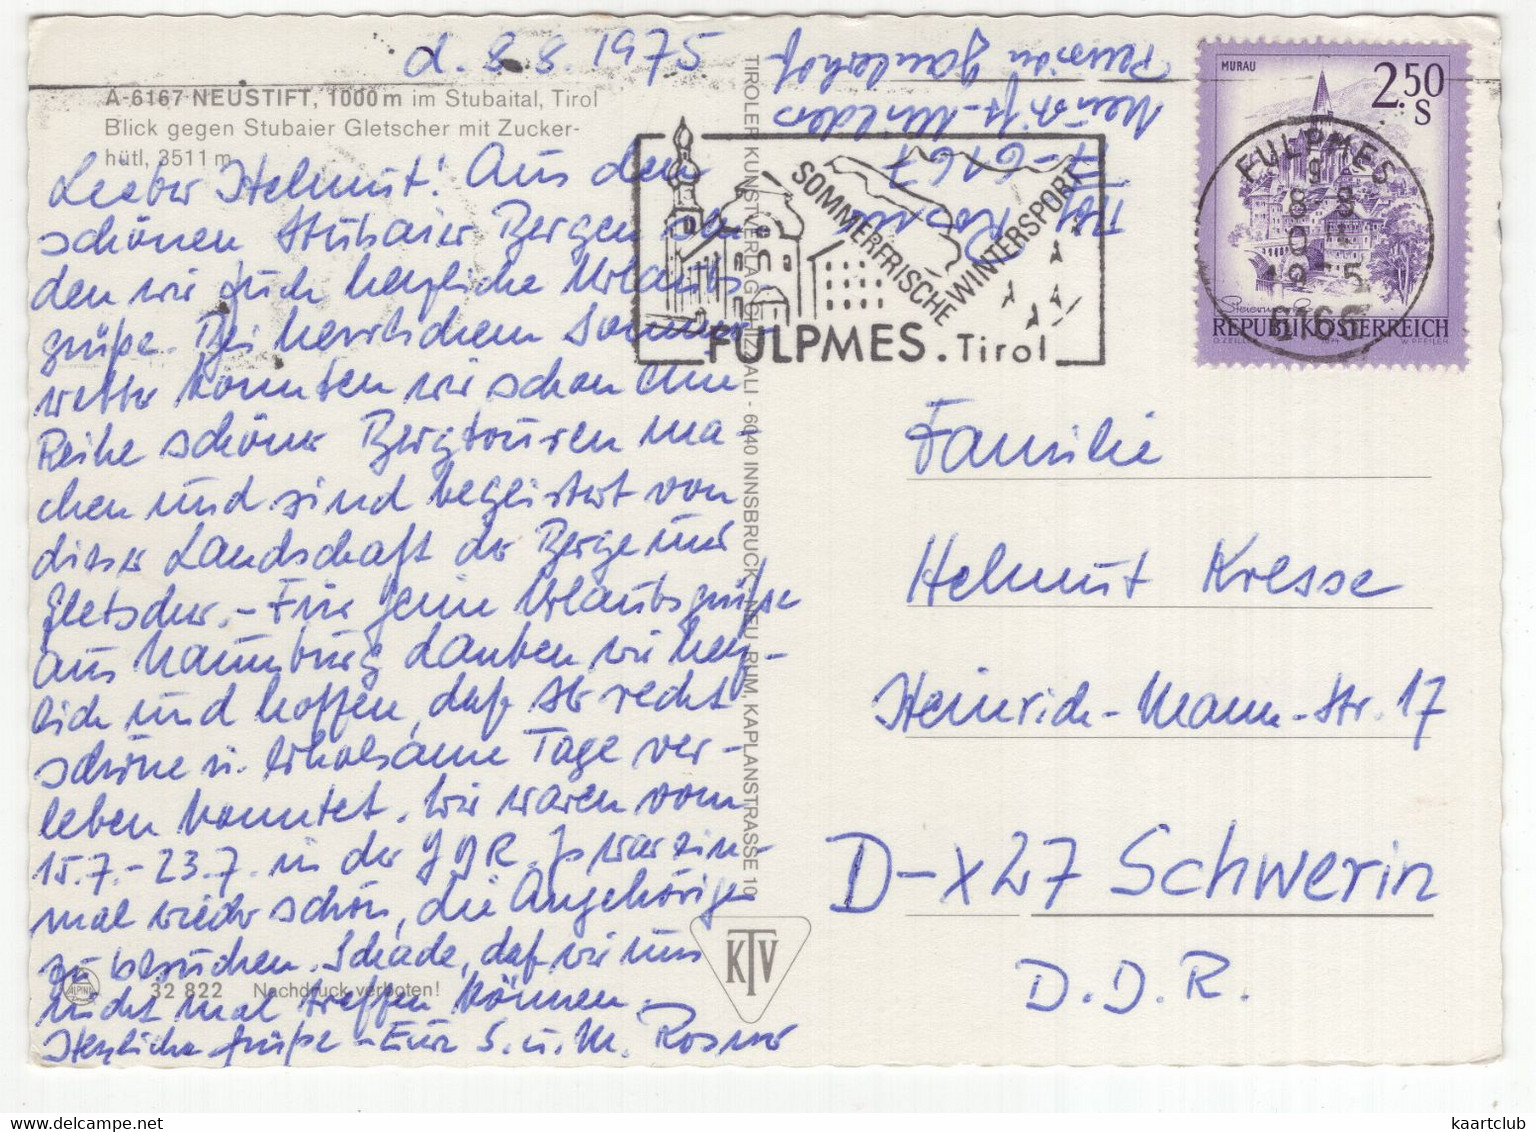 d. 8.8.1975
A-6167 NEUSTIFT, 1000 m im Stubaital, Tirol
Blick gegen Stubaier Gletscher mit Zucker-
hütl, 3511 m
Lieber Helmut! Aus den
schönen Stubaier Bergen sen-
den wir Euch herzliche Urlaubs-
grüße. Bei herrlichem Sommer-
wetter konnten wir schon eine
Reihe schöner Bergtouren ma-
chen und sind begeistert von
dieser Landschaft der Berge und
Gletscher. - Für Deine Urlaubsgrüße
aus Naumburg danken wir herz-
lich und hoffen, daß Ihr recht
schöne u. erholsame Tage ver-
leben konntet. Wir waren vom
15.7.-23.7. in der DDR. Es war ein-
mal wieder schön, die Angehörigen
zu besuchen. Schade, daß wir uns
nicht mal treffen können.
Herzliche Grüße - Eure S. u. M. Rosner
ALPINE
32 822 Nachdruck verboten!
TIROLER KUNSTVERLAG CHIZZALI - 6040 INNSBRUCK - NEU RUM, KAPLANSTRASSE 10
KTV
Rosner
A-6167
Neustift-Milders
Pension
SOMMERFRISCHE
WINTERSPORT
FULPMES. Tirol
MURAU
2.50
S
REPUBLIK ÖSTERREICH
FULPMES
6166
Familie
Helmut Kresse
Heinrich-Mann-Str. 17
D-X27 Schwerin
D.D.R.
kaartclub